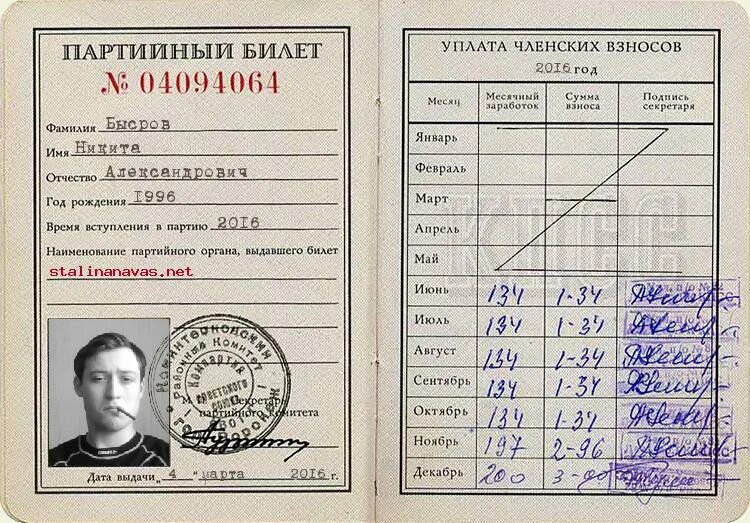 ПАРТИЙНЫЙ БИЛЕТ
№ 04094064
Фамилия Бысров
Имя Никита
Отчество Александрович
Год рождения 1996
Время вступления в партию 2016
Наименование партийного органа, выдавшего билет
stalinanavas.net
Районный Комитет
Компартия
Советского
Союза
М
Секретарь
партийного комитета
Дата выдачи „ 4 “ марта 2016 г.
УПЛАТА ЧЛЕНСКИХ ВЗНОСОВ
2016 год
Месяц Месячный заработок Сумма взноса Подпись секретаря
Январь
Февраль
Март
Апрель
Май
КПСС
Июнь 134 1-34
Июль 134 1-34
Август 134 1-34
Сентябрь 134 1-34
Октябрь 134 1-34
Ноябрь 197 2-96
Декабрь 200